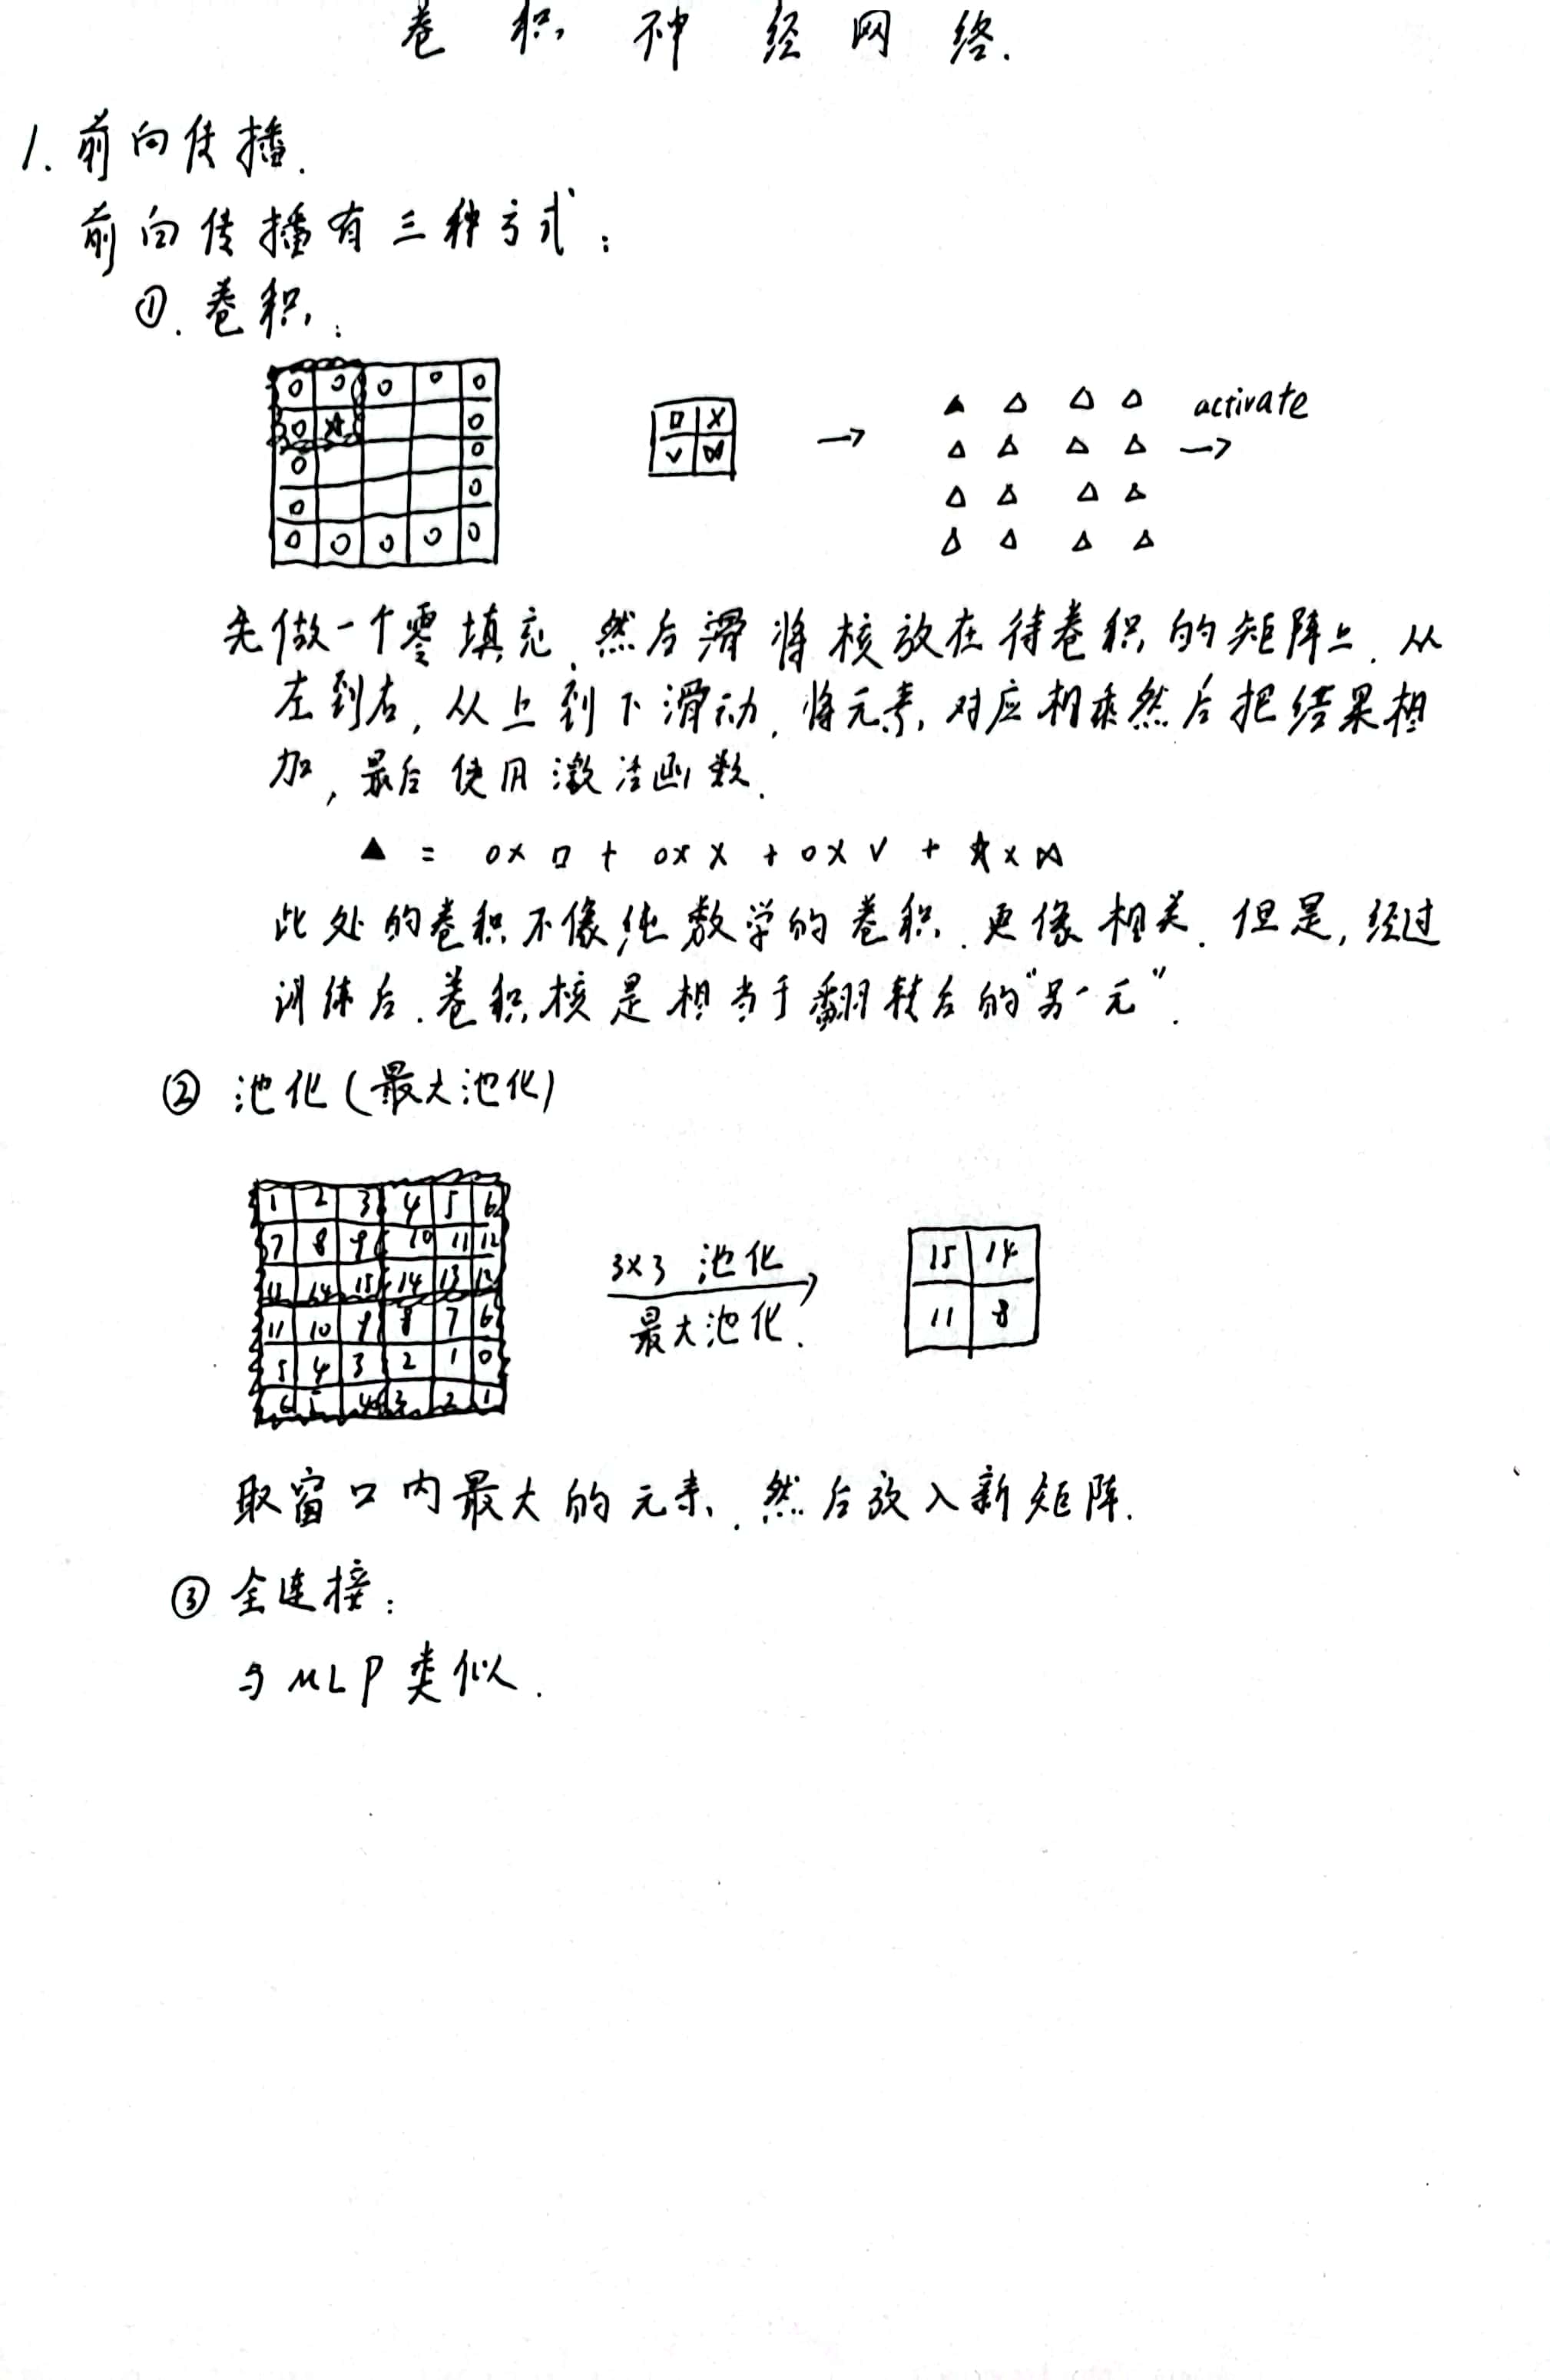 卷积神经网络.
1. 前向传播.
前向传播有三种方式:
①. 卷积:
0 0 0 0 0
0 ☆ 0
0 0
0 0
0 0 0 0 0
□ ×
∨ ⋈
→
▲ △ △ △ activate
△ △ △ △ →
△ △ △ △
△ △ △ △
先做一个零填充,然后滑将核放在待卷积的矩阵上.从
左到右,从上到下滑动,将元素对应相乘然后把结果相
加,最后使用激活函数.
▲ = 0×□ + 0×× + 0×∨ + ☆×⋈
此处的卷积不像纯数学的卷积.更像相关.但是,经过
训练后.卷积核是相当于翻转后的“另一元”.
② 池化(最大池化)
1 2 3 4 5 6
7 8 9 10 11 12
14 15 14 13 12
11 10 9 8 7 6
5 4 3 2 1 0
6 5 4 3 2 1
3×3 池化
最大池化.
15 14
11 8
取窗口内最大的元素.然后放入新矩阵.
③ 全连接:
与MLP类似.